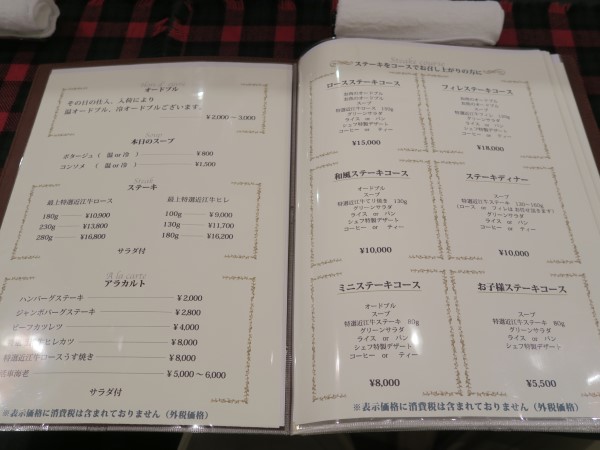 オードブル
その日の仕入、入荷により
温オードブル、冷オードブルございます。
¥2,000〜3,000
Soup
本日のスープ
ポタージュ（ 温 or 冷 ） ¥800
コンソメ （ 温 or 冷 ） ¥1,500
Steak
ステーキ
最上特選近江牛ロース
180g ¥10,900
230g ¥13,800
280g ¥16,800
最上特選近江牛ヒレ
100g ¥9,000
130g ¥11,700
180g ¥16,200
サラダ付
A la carte
アラカルト
ハンバーグステーキ ¥2,000
ジャンボバーグステーキ ¥2,800
ビーフカツレツ ¥4,000
ヒレカツ ¥8,000
特選近江牛ロースうす焼き ¥8,000
車海老 ¥5,000〜6,000
サラダ付
※表示価格に消費税は含まれておりません（外税価格）
ステーキをコースでお召し上がりの方に
ロースステーキコース
スープ
グリーンサラダ
ライス or パン
シェフ特製デザート
コーヒー or ティー
¥15,000
フィレステーキコース
スープ
グリーンサラダ
ライス or パン
シェフ特製デザート
コーヒー or ティー
¥18,000
和風ステーキコース
オードブル
スープ
特選近江牛てり焼き 130g
グリーンサラダ
ライス or パン
コーヒー or ティー
¥10,000
ステーキディナー
スープ
特選近江牛ステーキ 130〜160g
グリーンサラダ
ライス or パン
コーヒー or ティー
¥10,000
ミニステーキコース
オードブル
スープ
特選近江牛ステーキ 80g
グリーンサラダ
ライス or パン
シェフ特製デザート
コーヒー or ティー
¥8,000
お子様ステーキコース
スープ
特選近江牛ステーキ 80g
グリーンサラダ
ライス or パン
シェフ特製デザート
¥5,500
※表示価格に消費税は含まれておりません（外税価格）